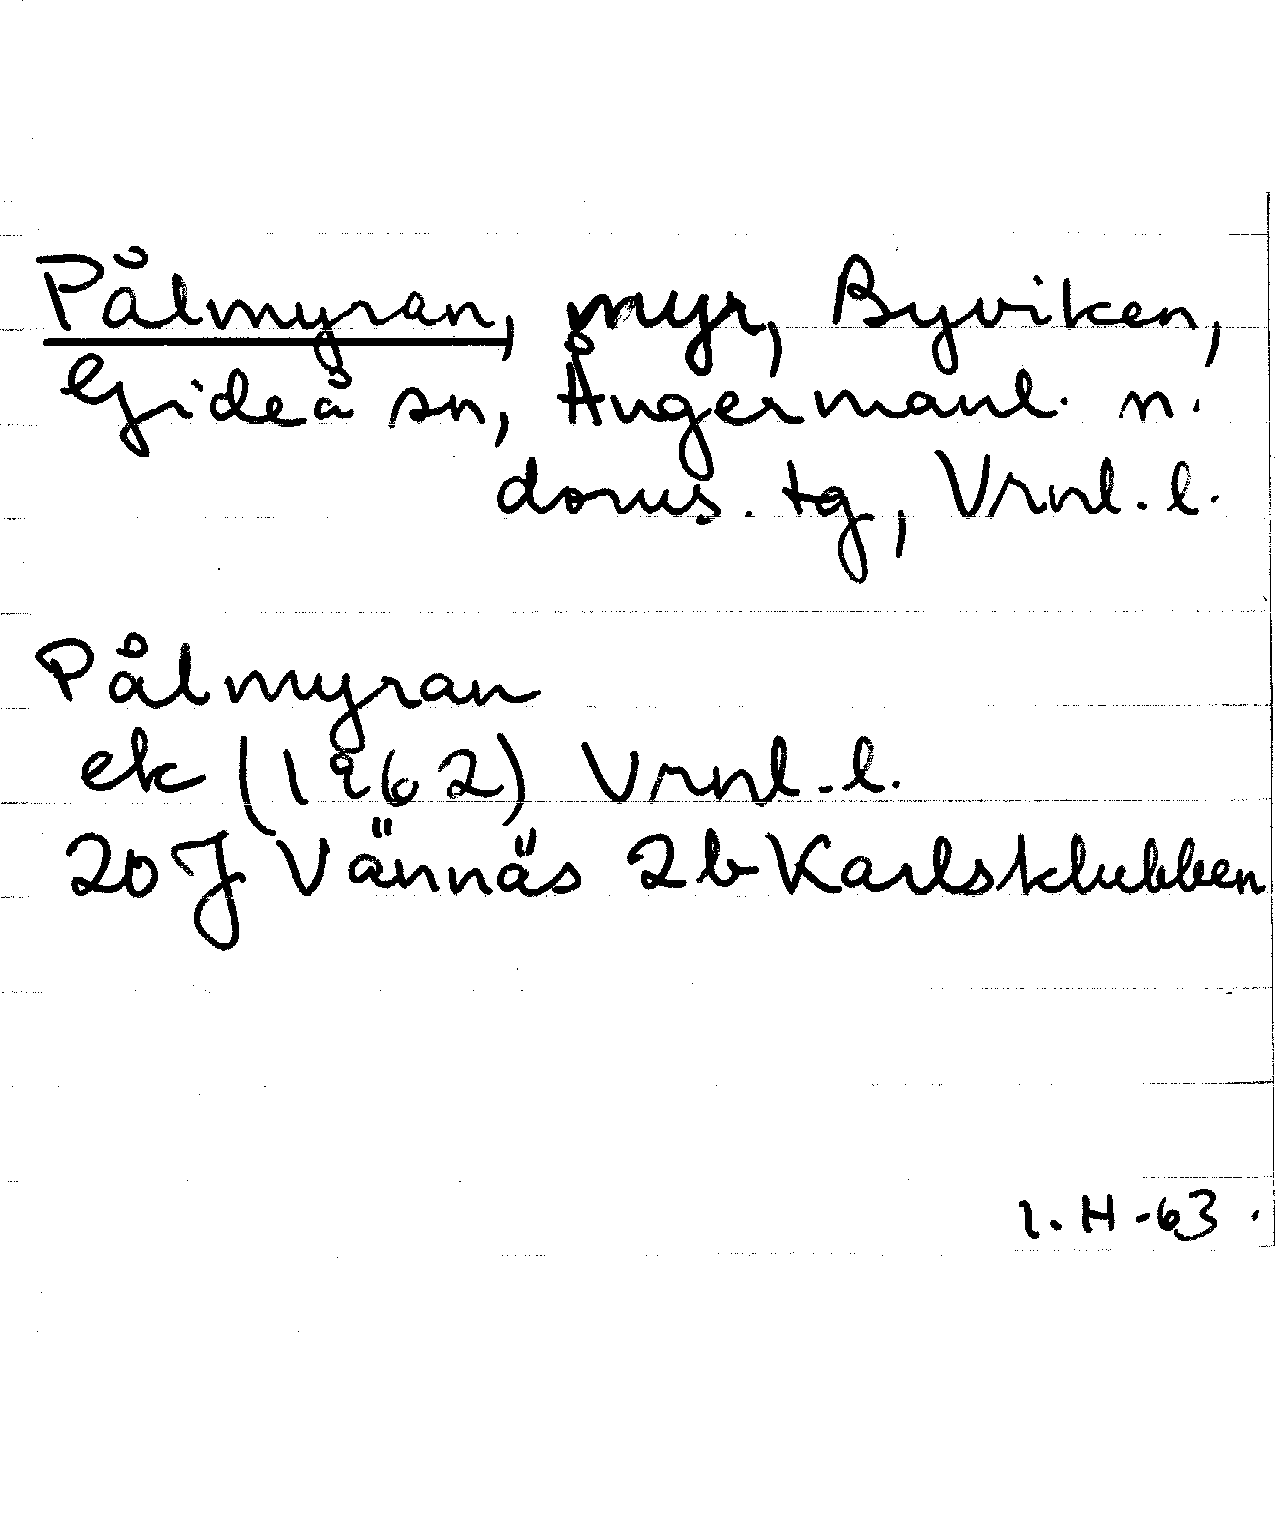 Pålmyran, myr, Byviken,
Gideå sn, Ångermanl. n.
doms. tg, Vrnl. l.
Pålmyran
ek (1962) Vrnl. l.
20 J Vännäs 2b Karlsklubben
I. H -63.